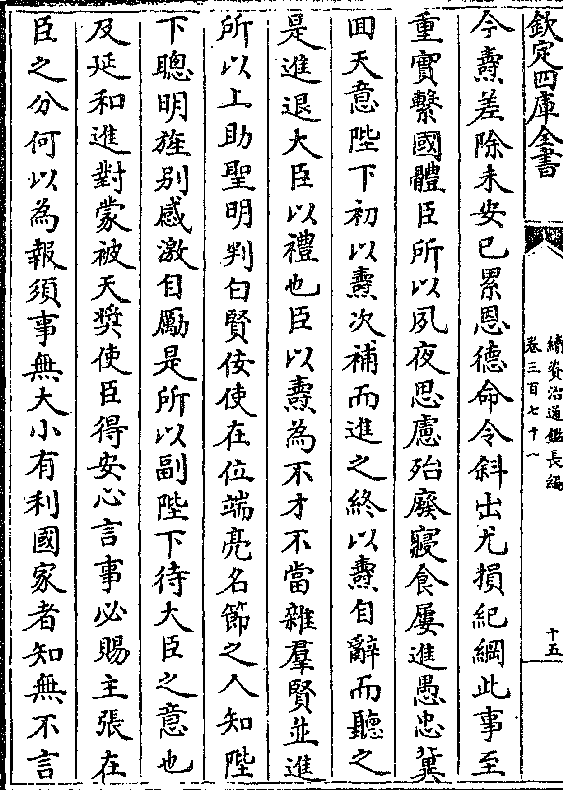 欽定四庫全書
續資治通鑑長編
卷三百七十一
十五
今燾差除未安已累恩德命令斜出尤損紀綱此事至
重實繫國體臣所以夙夜思慮殆廢寢食屢進愚忠冀
囬天意陛下初以燾次補而進之終以燾自辭而聽之
是進退大臣以禮也臣以燾為不才不當雜羣賢並進
所以上助聖明判白賢佞使在位端亮名節之人知陛
下聰明旌别感激自厲是所以副陛下待大臣之意也
及延和進對蒙被天奬使臣得安心言事必賜主張在
臣之分何以為報須事無大小有利國家者知無不言